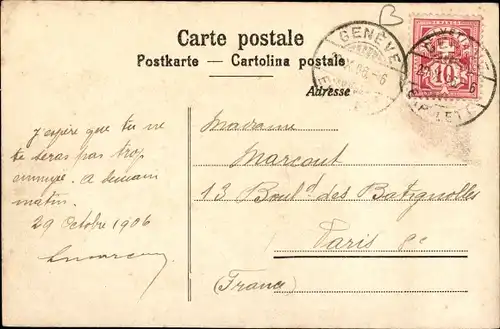 Carte postale
Postkarte — Cartolina postale
Adresse
B
GENÈVE
10
J'espère que tu ne
te seras pas trop
ennuyé. A demain
matin.
29 Octobre 1906
Madame
Marcout
13 Boul.d des Batignolles
Paris
(France)